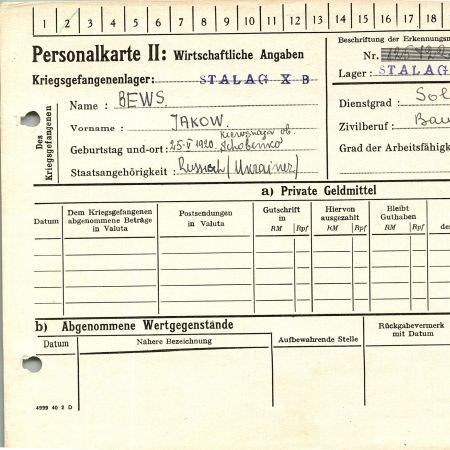 1 2 3 4 5 6 7 8 9 10 11 12 13 14 15 16 17 18
Personalkarte II: Wirtschaftliche Angaben
Beschriftung der Erkennungsm
Kriegsgefangenenlager: STALAG X B
Nr.
Lager: STALAG
Des Kriegsgefangenen
Name: BEWS
Dienstgrad: Sol
Vorname: JAKOW.
Zivilberuf: Bau
Geburtstag und-ort: 25-V 1920.
Grad der Arbeitsfähigk
Staatsangehörigkeit: Russisch/Ukrainer/
a) Private Geldmittel
Datum
Dem Kriegsgefangenen abgenommene Beträge in Valuta
Postsendungen in Valuta
Gutschrift in
RM Rpf
Hiervon ausgezahlt
RM Rpf
Bleibt Guthaben
RM Rpf
de
b) Abgenommene Wertgegenstände
Datum
Nähere Bezeichnung
Aufbewahrende Stelle
Rückgabevermerk mit Datum
4999 40 2 D